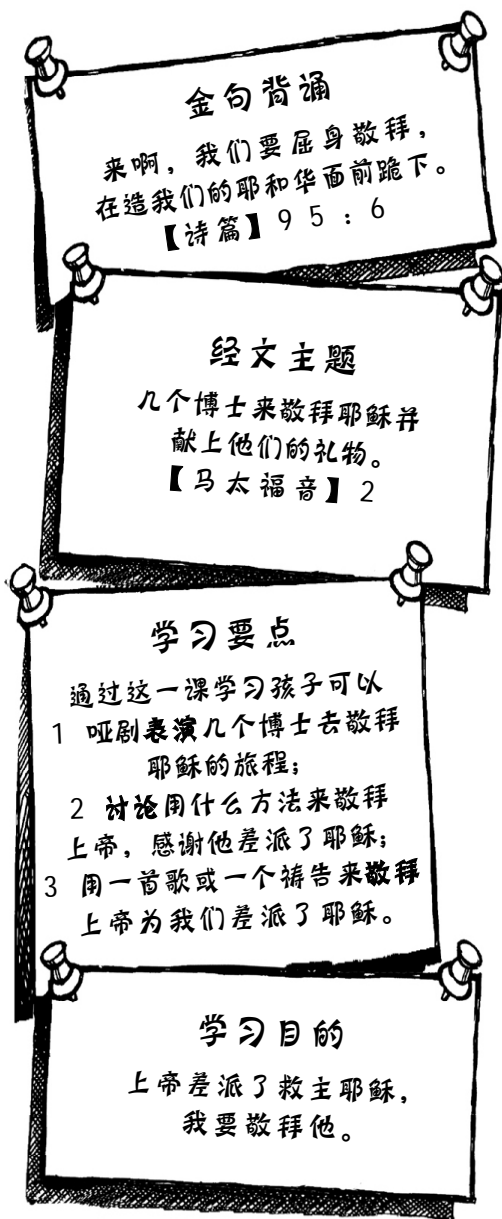 金句背诵
来啊，我们要屈身敬拜，
在造我们的耶和华面前跪下。
【诗篇】95：6
经文主题
几个博士来敬拜耶稣并
献上他们的礼物。
【马太福音】2
学习要点
通过这一课学习孩子可以
1 哑剧表演几个博士去敬拜
耶稣的旅程；
2 讨论用什么方法来敬拜
上帝，感谢他差派了耶稣；
3 用一首歌或一个祷告来敬拜
上帝为我们差派了耶稣。
学习目的
上帝差派了救主耶稣，
我要敬拜他。